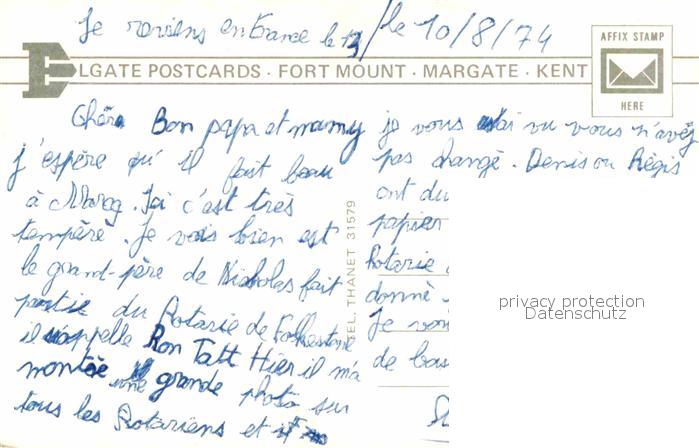 Je reviens en France le 13 / le 10/8/74
AFFIX STAMP
HERE
ELGATE POSTCARDS · FORT MOUNT · MARGATE · KENT
TEL. THANET 31579
Chère Bon papa et mamy
j'espère qu'il fait beau
à Marcq. Ici c'est très
tempéré. Je vais bien est
le grand-père de Nicholas fait
partie du Rotarie de Folkestone
il s'appelle Ron Tatt Hier il m'a
montée une grande photo sur
tous les Rotariens et
je vous ai vu vous n'avéz
pas changé. Denis ou Régis
ont du
papier
Rotarie
donné
Je vou
de bas
privacy protection
Datenschutz